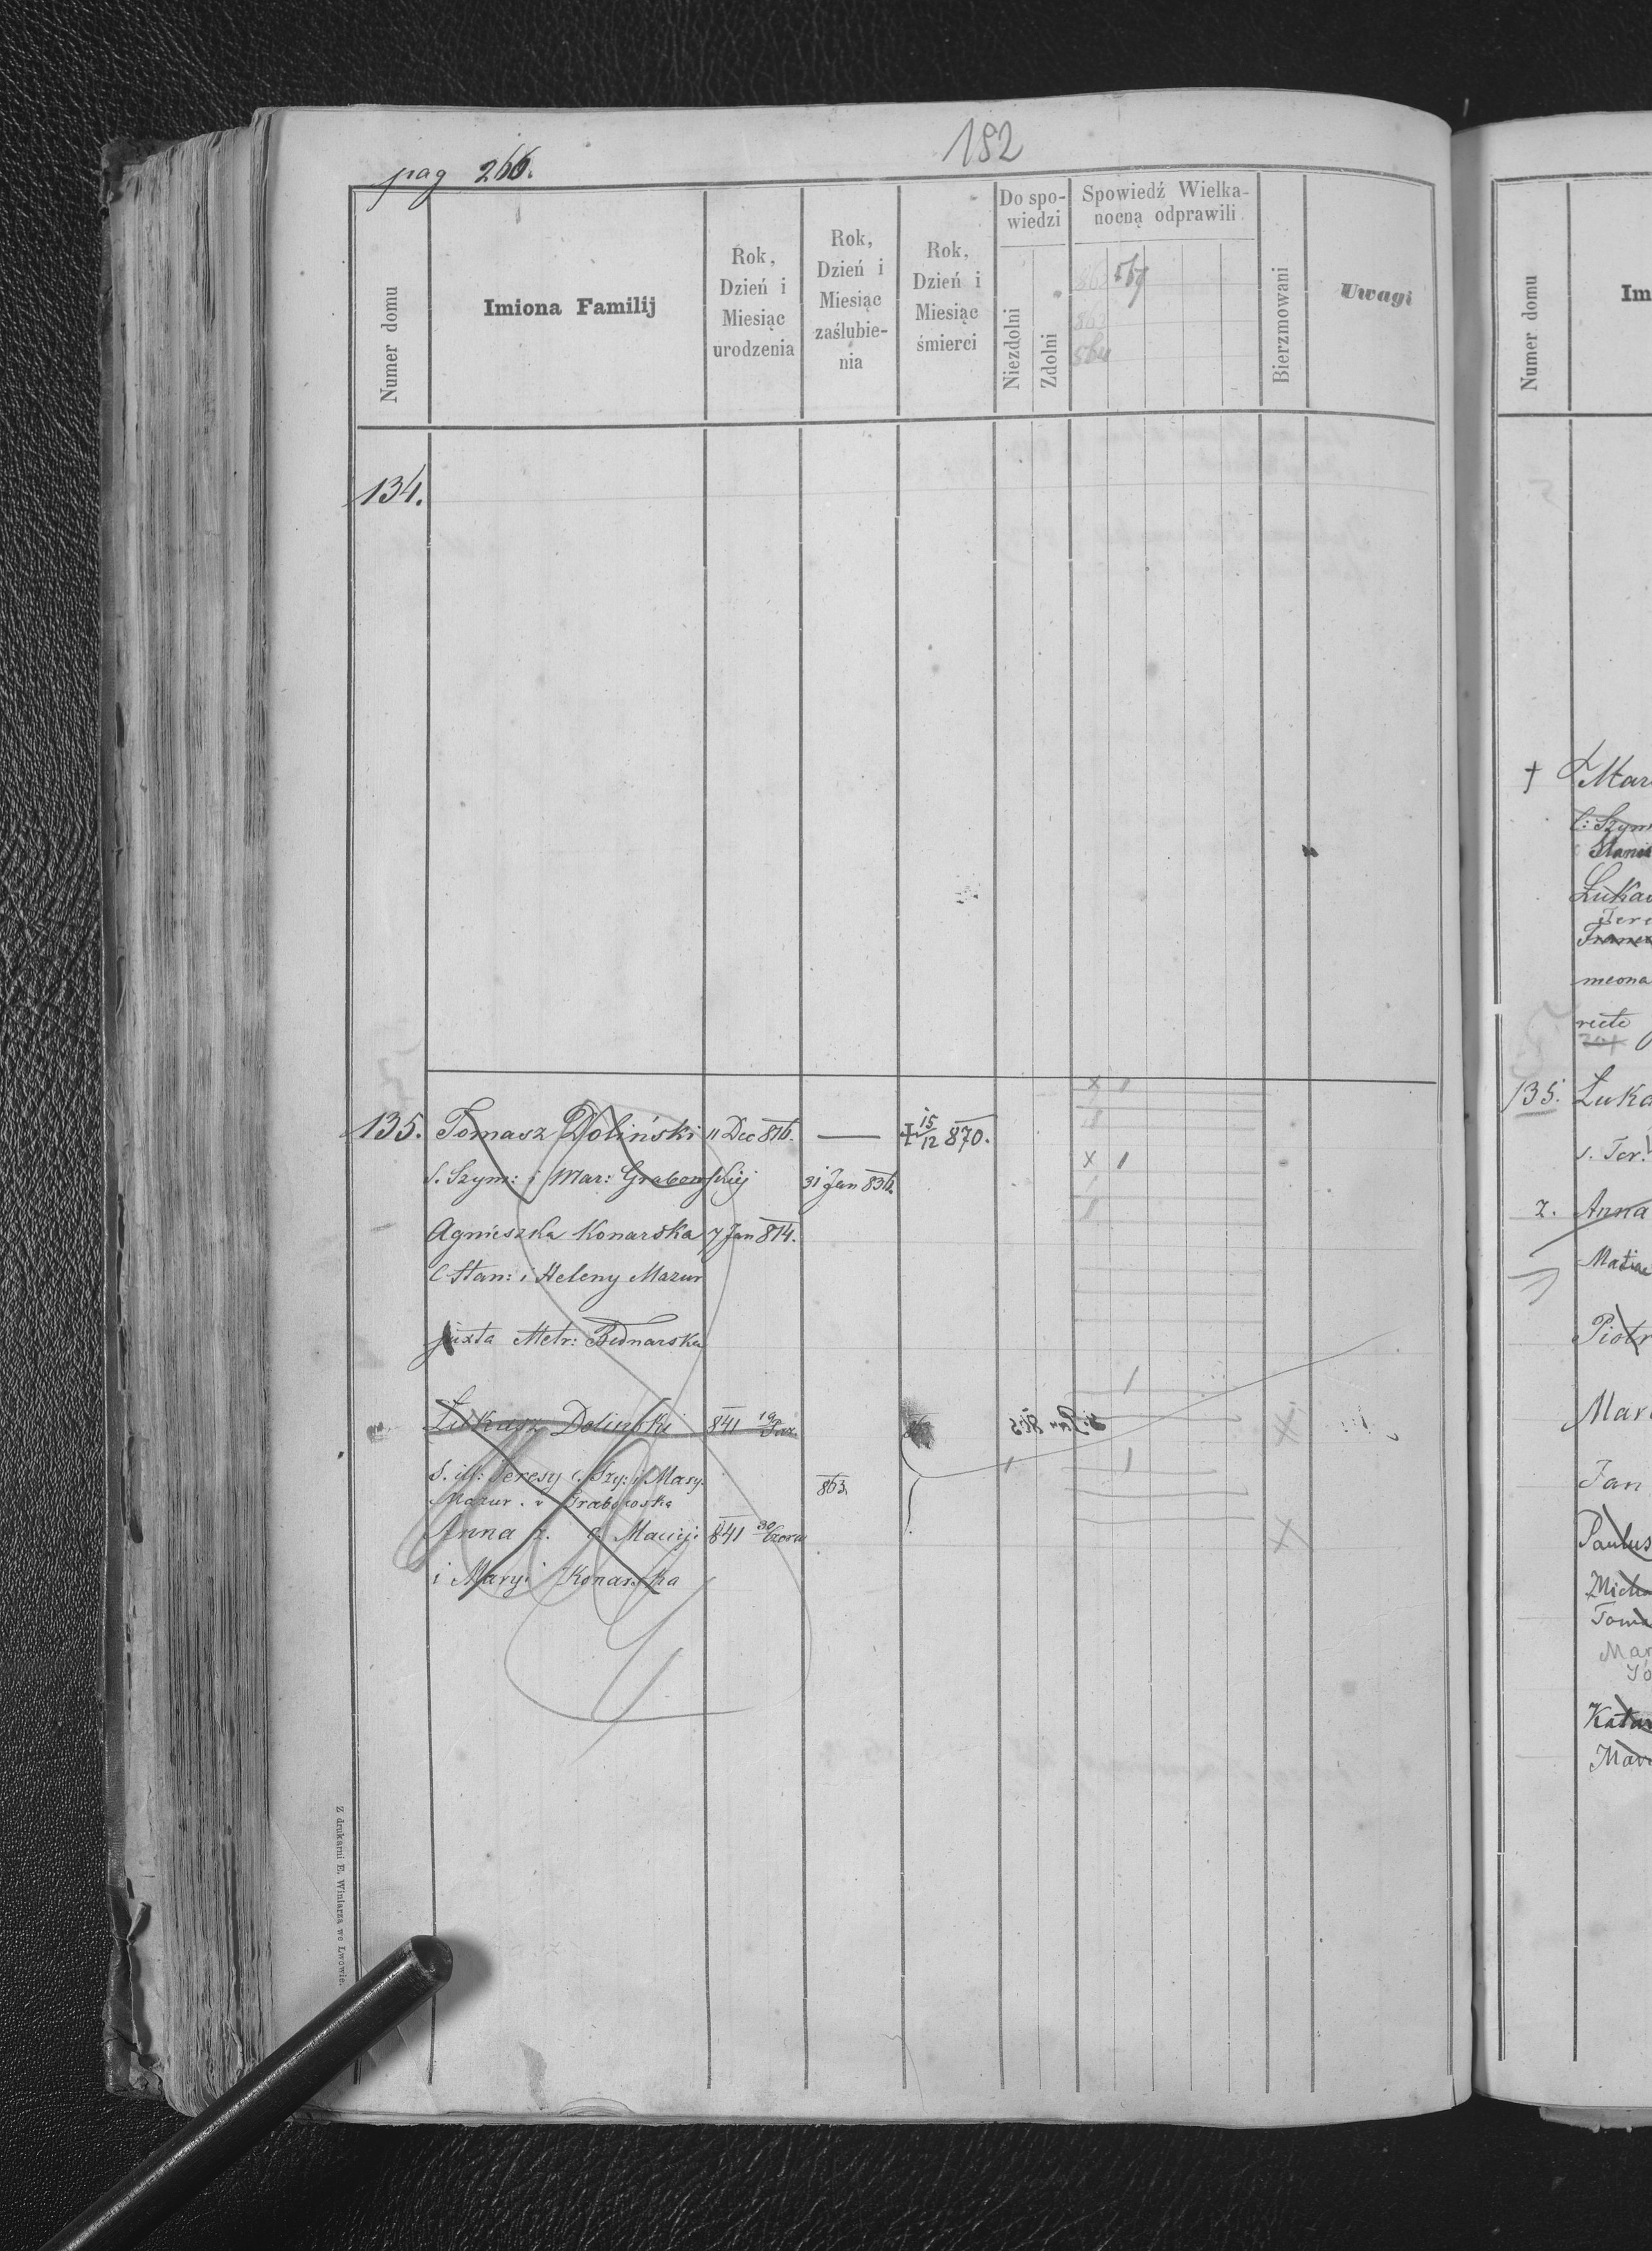 182
pag 266.
Numer domu
Imiona Familij
Rok,
Dzień i
Miesiąc
urodzenia
Rok,
Dzień i
Miesiąc
zaślubie-
nia
Rok,
Dzień i
Miesiąc
śmierci
Do spo-
wiedzi
Niezdolni
Zdolni
Spowiedź Wielka-
nocną odprawili
Bierzmowani
Uwagi
134.
135. Tomasz Doliński 11 Dec 816. — + 15/12 870.
S. Szym: i Mar: Grabowskiej 31 Jan 836.
Agnieszka Konarska 7 Jan 814.
C Stan: i Heleny Mazur
juxta Metr: Bednarska
Łukasz Doliński 841 19/Paz
S. ill: Teresy c. Szy: i Mary:
Mazur. v Grabowska 863.
Anna z. c. Macieja 841 30/Czerw
i Maryi Konarska
Z drukarni E. Winiarza we Lwowie.
Numer domu
Im
† Mar
C: Szym
Stanis
Łukas
Tere
meona
recte
135. Łuka
s. Ter.
2. Anna
Piotr
Mar
Jan
Paulus
Mich
Toma
Mar
Jó
Katar